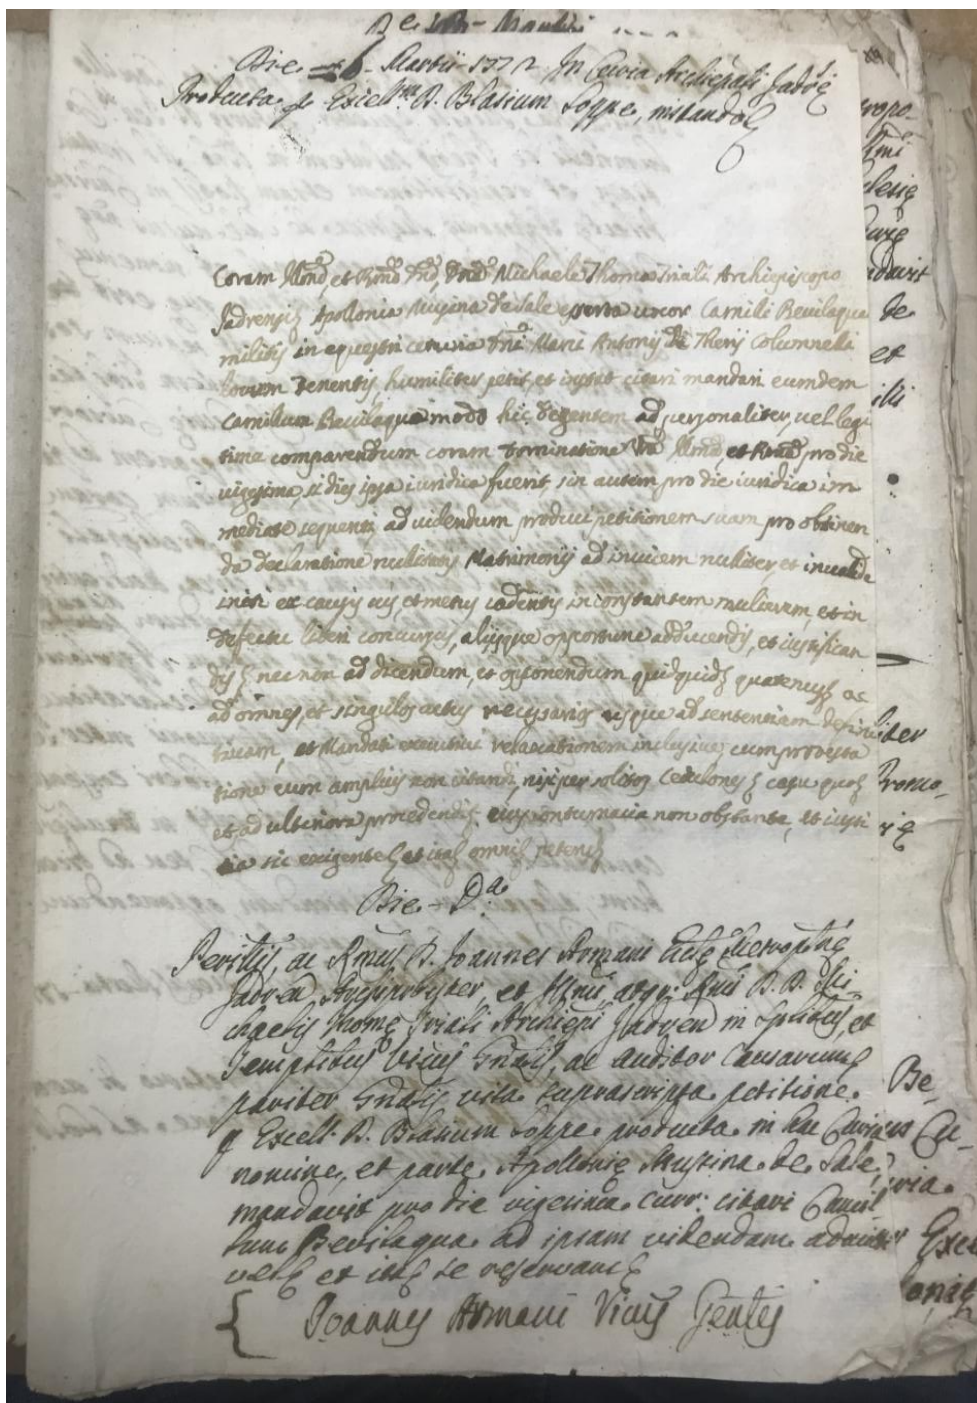 Die 6 Martii 1772 In Curia Archiepāli Jadrę
Producta p Excell.m D. Blasium Soppe, instandoq
Coram Illmō, et Rmō Dnō, Dnō Michaele Thoma Triali Archiepiscopo
Jadrensi Apollonia Musina de Sale exerta uxor Camili Beuilaqua
militis in equestri centuria Dni Marci Antonij de Therij Columnella
locum tenentis, humiliter petit, et instat citari mandari eumdem
Camillum Beuilaqua modo hic degentem ad personaliter, uel legi
time comparendum coram Dominatione Vra Illmā, et Rmā pro die
uigesima, si dies ipsa iuridica fuerit, sin autem pro die iuridica im
mediate sequenti ad uidendum produci petitionem suam pro obtinen
da declaratione nullitatis Matrimonij ad inuicem nulliter, et inualide
initi ex causis uis, et metus cadentis in constantem mulierem, et in
defectu liberi concursus, alijsque opportune adducendis, et iustifican
dis; nec non ad dicendum, et opponendum quidquid quatenus ac
ad omnes, et singulos actus necessarios usque ad sententiam defini
tiuam, et Mandati executiui relaxationem inclusiue, cum protesta
tione eum amplius non citandi, nisi per solitos Cedulones casu quo
et ad ulteriora procedendi eius contumacia non obstante, et iusti
tia sic exigente et ita omni petens
Die D.a
Perillis, ac Rmus D. Joannes Armani Eccłę Metropnę
Jadren Archipresbyter, et Illmi atque Rmi D. D. Mi-
chaelis Thomę Triali Archiepi Jadren in Splibus, et
Templibus Vicus Gnalis, ac auditor Causarum
pariter Gnalis visa suprascripta petitione
p Excell. D. Blasium Soppe producta in hac Curia
nomine, et parte Apollonię Musina de Sale,
mandavit pro die vigesima curr: citari Camil
lum Bevilaqua ad ipsam videndam admitti
et ita se reservans
Joannes Armani Vicus Gentis